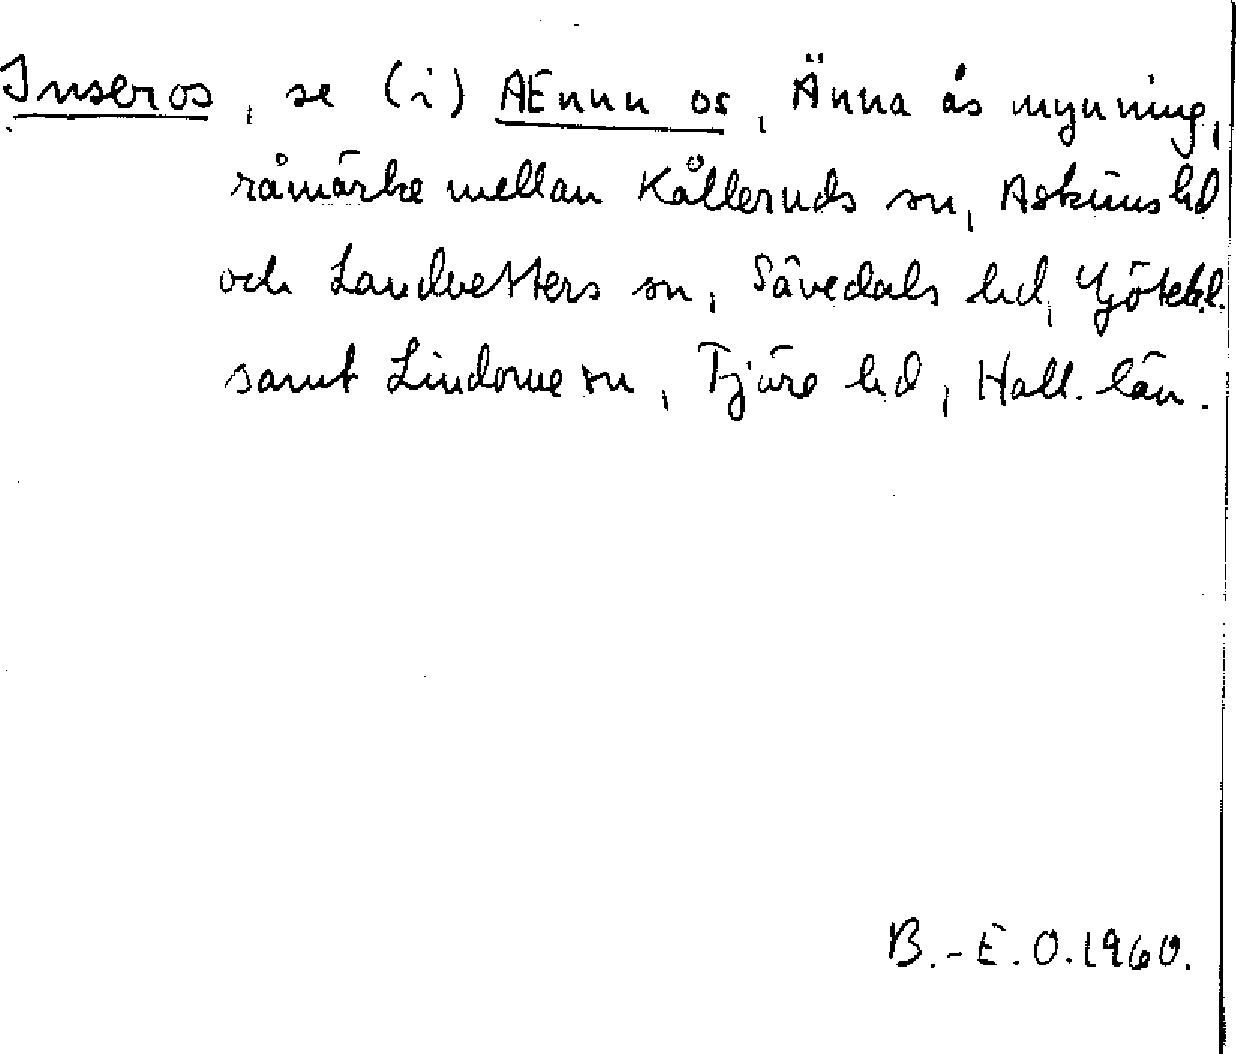 Inseros, se (i) AEnnu os, Änna ås mynning,
råmärke mellan Kålleruds sn, Askims hd
och Landvetters sn, Sävedals hd, Götebl.
samt Lindome sn, Fjäre hd, Hall. län.
B.-E.O.1960.